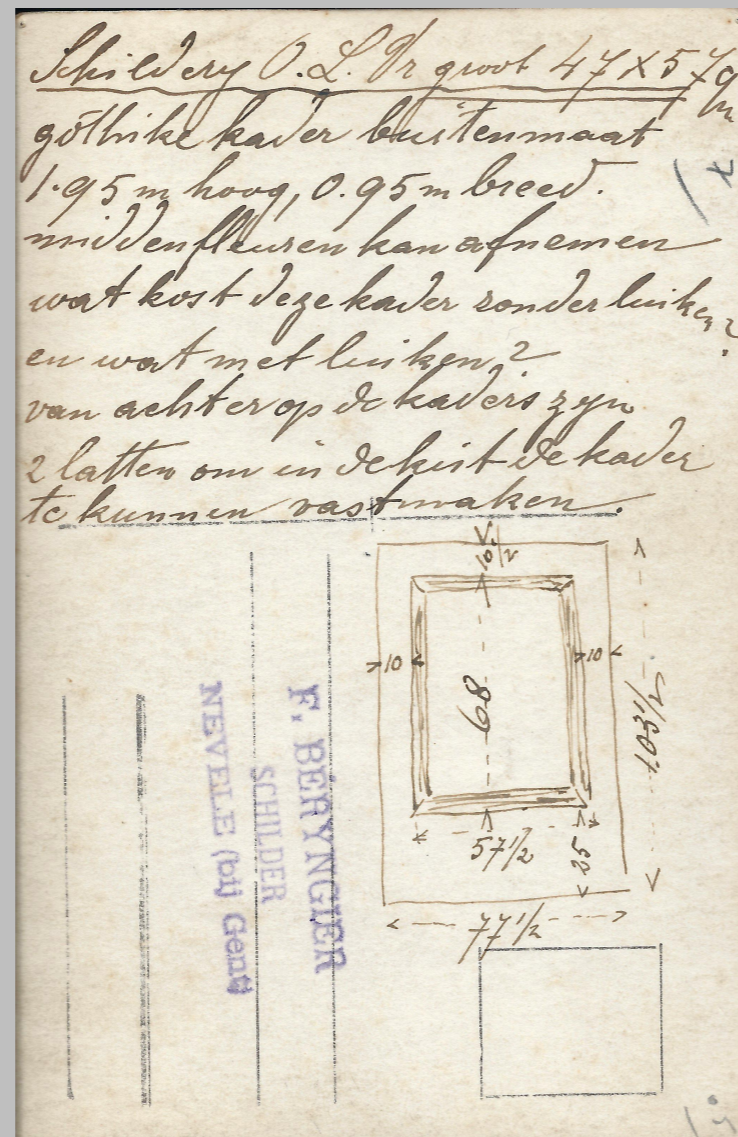 Schildery O.L.Vr groot 47 X 57 c/m
gothike kader buitenmaat
1.95 m hoog, 0.95 m breed.
middenfleuren kan afnemen
wat kost deze kader zonder luiken?
en wat met luiken?
van achter op de kaders zyn
2 latten om in de kist de kader
te kunnen vastmaken.
10 1/2
10
10
68
103 1/2
57 1/2
25
77 1/2
F. BERYNGIER
SCHILDER
NEVELE (bij Gent)